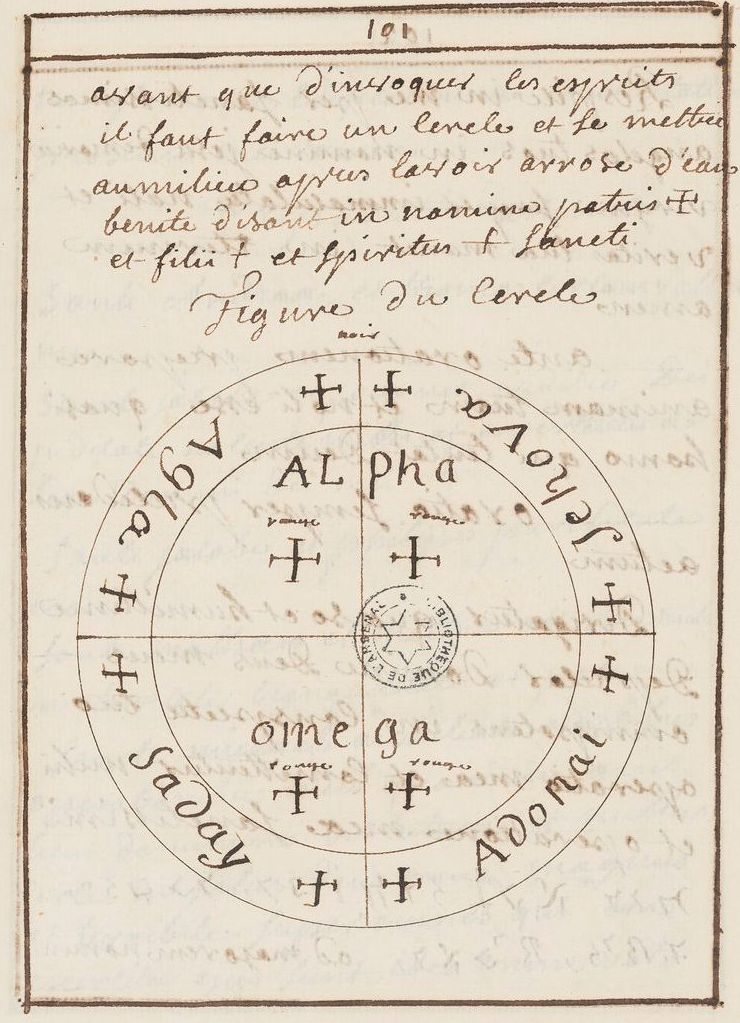 101
avant que d'invoquer les esprits
il faut faire un cercle et se mettre
aumilieu apres lavoir arrose d'eau
benite disant in nomine patris ✝
et filii ✝ et spiritus ✝ sancti
Figure du cercle
noir
Agla
Jehova
ALpha
rouge rouge
BIBLIOTHEQUE DE L'ARSENAL
omega
rouge rouge
Saday
Adonai